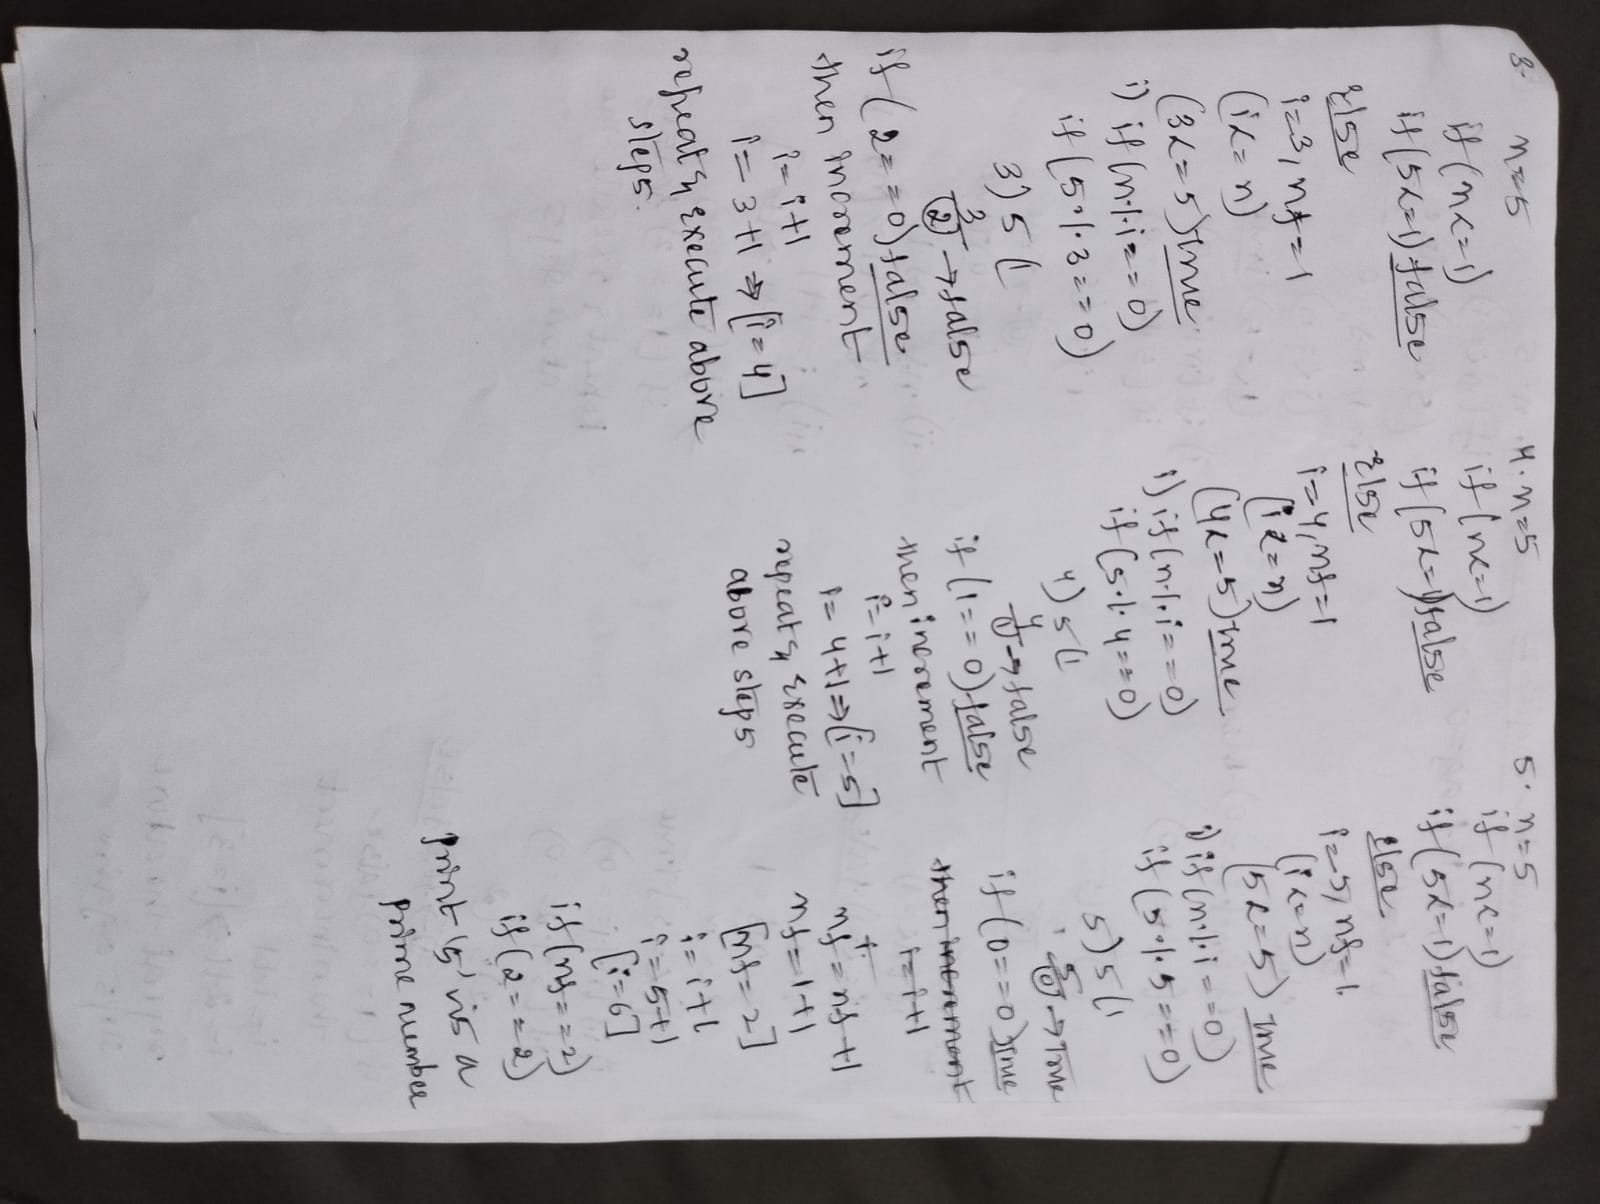 3. n=5
if (n<=1)
if (5<=1) false
Else
i=3, nf=1
(i<=n)
(3<=5) True
i) if (n%i==0)
if (5%3==0)
3) 5 (1
3
2 → false
if (2==0) false
then increment
i=i+1
i=3+1 ⇒ [i=4]
repeat & execute above
steps.
4. n=5
if (n<=1)
if (5<=1) false
Else
i=4, nf=1
(i<=n)
(4<=5) True
i) if (n%i==0)
if (5%4==0)
4) 5 (1
4
1 → false
if (1==0) false
then increment
i=i+1
i=4+1 ⇒ [i=5]
repeat & execute
above steps
5. n=5
if (n<=1)
if (5<=1) false
Else
i=5, nf=1.
(i<=n)
(5<=5) True
i) if (n%i==0)
if (5%5==0)
5) 5 (1
5
0 → True
if (0==0) True
then increment
i=i+1
nf=nf+1
nf=1+1
[nf=2]
i=i+1
i=5+1
[i=6]
if (nf==2)
if (2==2)
print '5' is a
prime number